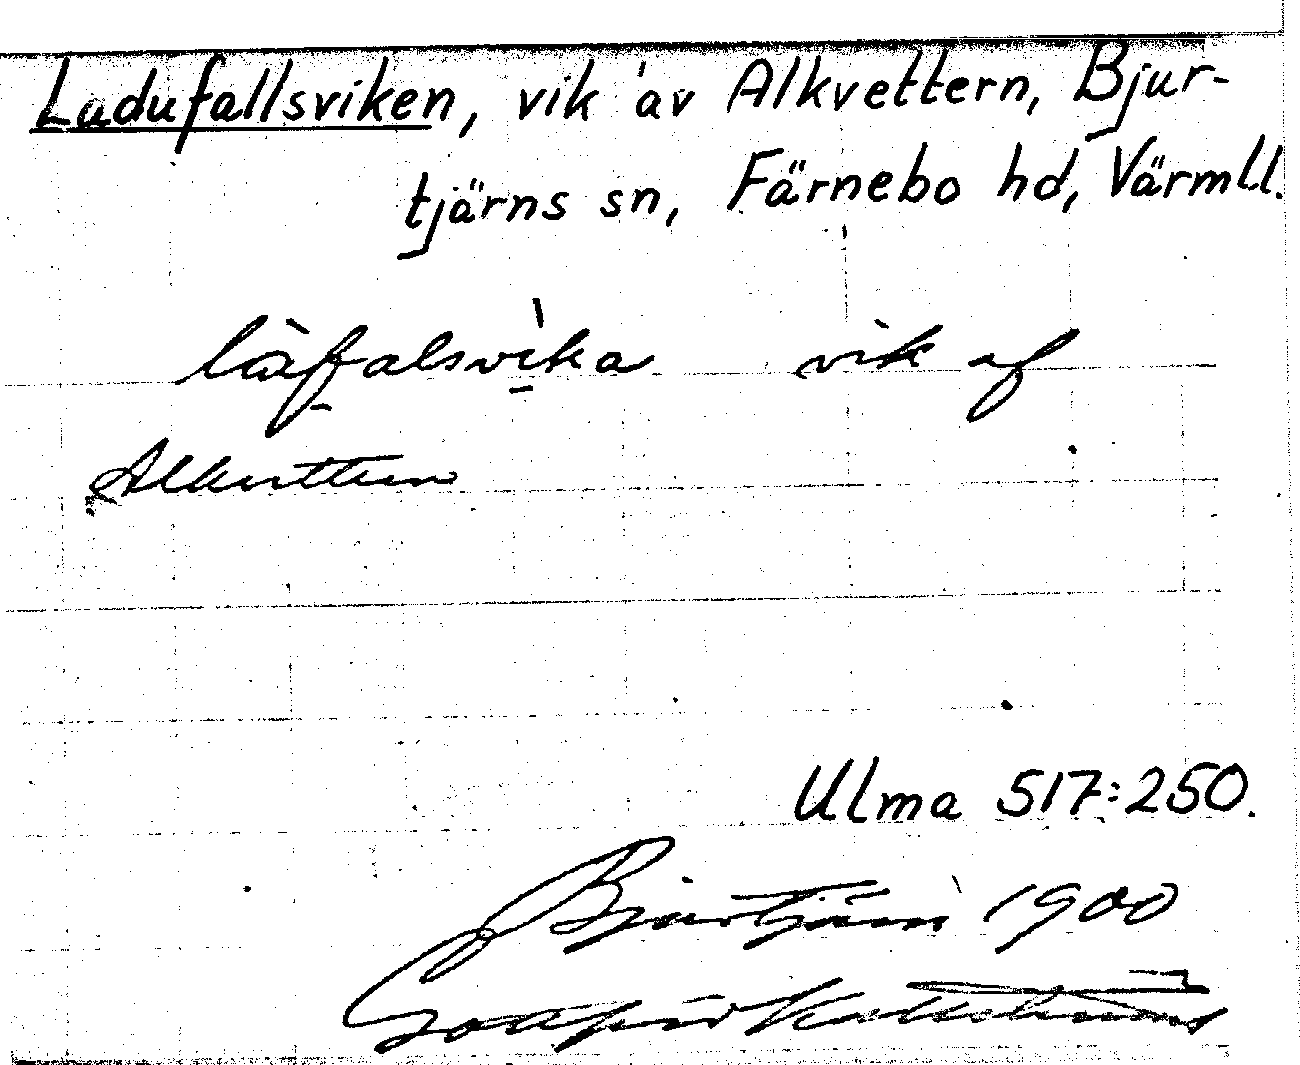 Ladufallsviken, vik av Alkvettern, Bjur-
tjärns sn, Färnebo hd, Värmll.
làffalsvìka vik af
Alkvettern
Ulma 517:250.
Bjurtjärn 1900
Kallstenius